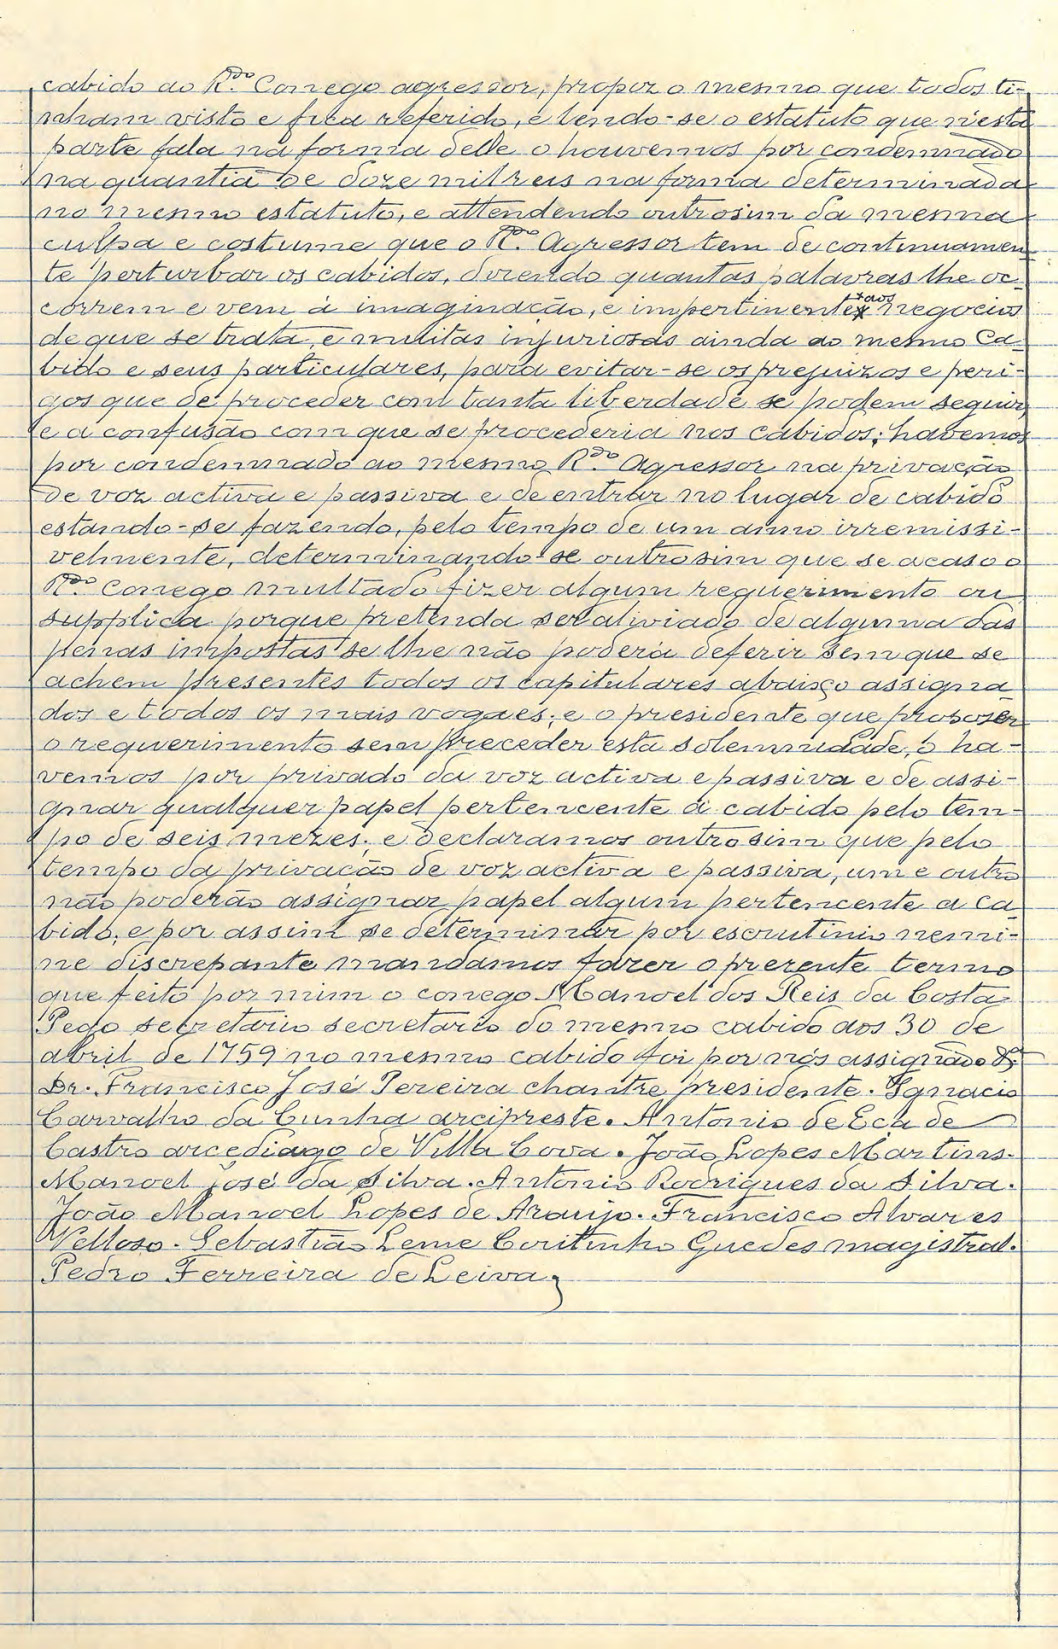 cabido ao R.do Conego agressor, propoz o mesmo que todos ti-
nham visto e fica referido, e lendo-se o estatuto que n'esta
parte fala na forma delle o houvemos por condemnado
na quantia de doze mil reis na forma determinada
no mesmo estatuto, e attendendo outrosim da mesma
culpa e costume que o R.do Agressor tem de continuamen-
te perturbar os cabidos, dizendo quantas palavras lhe oc-
correm e vem á imaginação, e impertinentes aos negocios
de que se trata, e muitas injuriosas ainda ao mesmo Ca-
bido e seus particulares, para evitar-se os prejuizos e peri-
gos que de proceder com tanta liberdade se podem seguir,
e a confusão com que se procederia nos cabidos; havemos
por condemnado ao mesmo R.do Agressor na privação
de voz activa e passiva e de entrar no lugar de cabido
estando-se fazendo, pelo tempo de um anno irremissi-
velmente, determinando-se outrosim que se acaso o
R.do Conego multado fizer algum requerimento ou
supplica porque pretenda ser aliviado de alguma das
penas impostas se lhe não poderá deferir sem que se
achem presentes todos os capitulares abaixo assigna-
dos e todos os mais vogaes; e o presidente que propozer
o requerimento sem preceder esta solemnidade, o ha-
vemos por privado da voz activa e passiva e de assi-
gnar qualquer papel pertencente a cabido pelo tem-
po de seis mezes; e declaramos outrosim que pelo
tempo da privação de voz activa e passiva, um e outro
não poderão assignar papel algum pertencente a ca-
bido; e por assim se determinar por escrutinio nemi-
ne discrepante mandamos fazer o prezente termo
que feito por mim o conego Manoel dos Reis da Costa
Pego secretario secretario do mesmo cabido aos 30 de
abril de 1759 no mesmo cabido foi por nós assignado
Dr. Francisco José Pereira chantre presidente. Ignacio
Carvalho da Cunha arcipreste. Antonio de Eça de
Castro arcediago de Villa Cova. João Lopes Martins.
Manoel José da Silva. Antonio Rodrigues da Silva.
João Manoel Lopes de Araujo. Francisco Alvares
Velloso. Sebastião Leme Coritinho Guedes magistral.
Pedro Ferreira de Leiva,